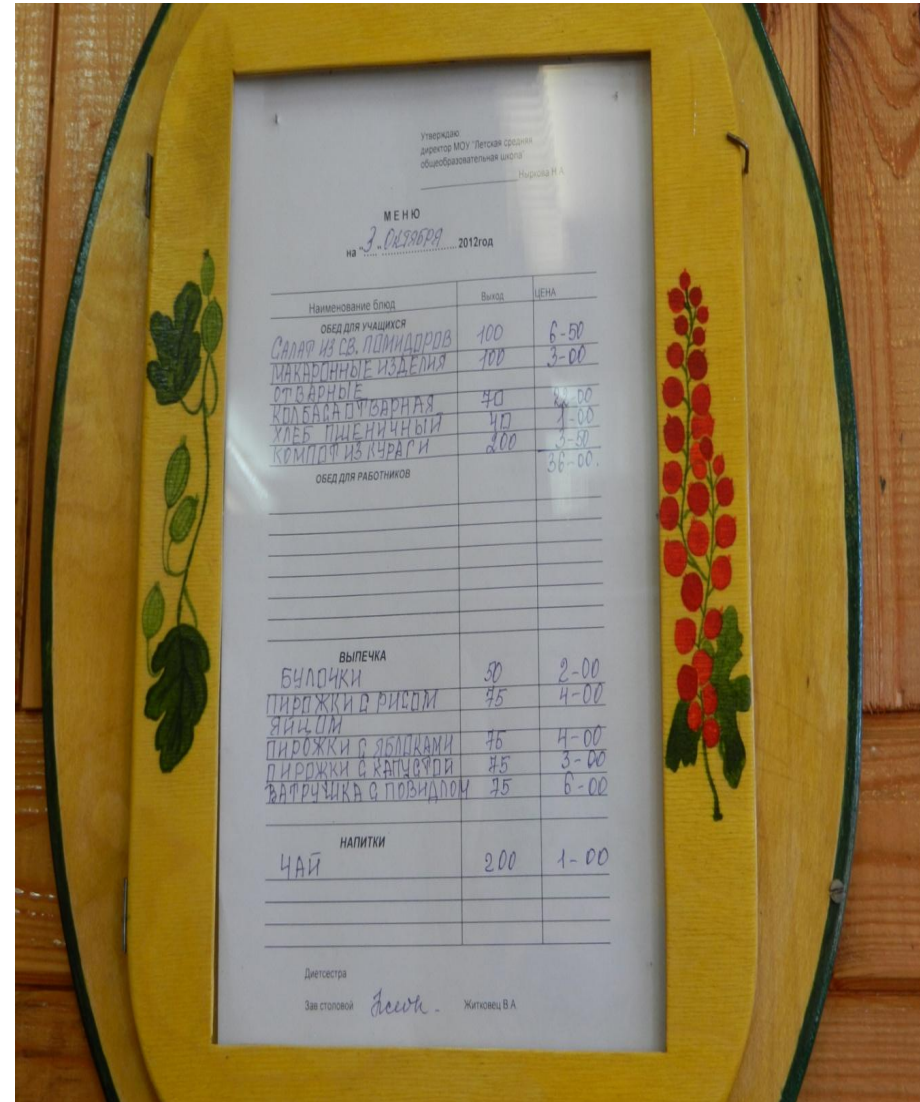 Утверждаю
директор МОУ "Летская средняя
общеобразовательная школа"
Ныркова Н.А.
МЕНЮ
на "3" ОКТЯБРЯ 2012год
Наименование блюд Выход ЦЕНА
ОБЕД ДЛЯ УЧАЩИХСЯ
САЛАТ ИЗ СВ. ПОМИДОРОВ 100 6-50
МАКАРОННЫЕ ИЗДЕЛИЯ 100 3-00
ОТВАРНЫЕ
КОЛБАСА ОТВАРНАЯ 70
ХЛЕБ ПШЕНИЧНЫЙ 40 1-00
КОМПОТ ИЗ КУРАГИ 200 3-50
36-00.
ОБЕД ДЛЯ РАБОТНИКОВ
ВЫПЕЧКА
БУЛОЧКИ 50 2-00
ПИРОЖКИ С РИСОМ 75 4-00
ЯЙЦОМ
ПИРОЖКИ С ЯБЛОКАМИ 75 4-00
ПИРОЖКИ С КАПУСТОЙ 75 3-00
ВАТРУШКА С ПОВИДЛОМ 75 6-00
НАПИТКИ
ЧАЙ 200 1-00
Диетсестра
Зав столовой Житковец В.А.